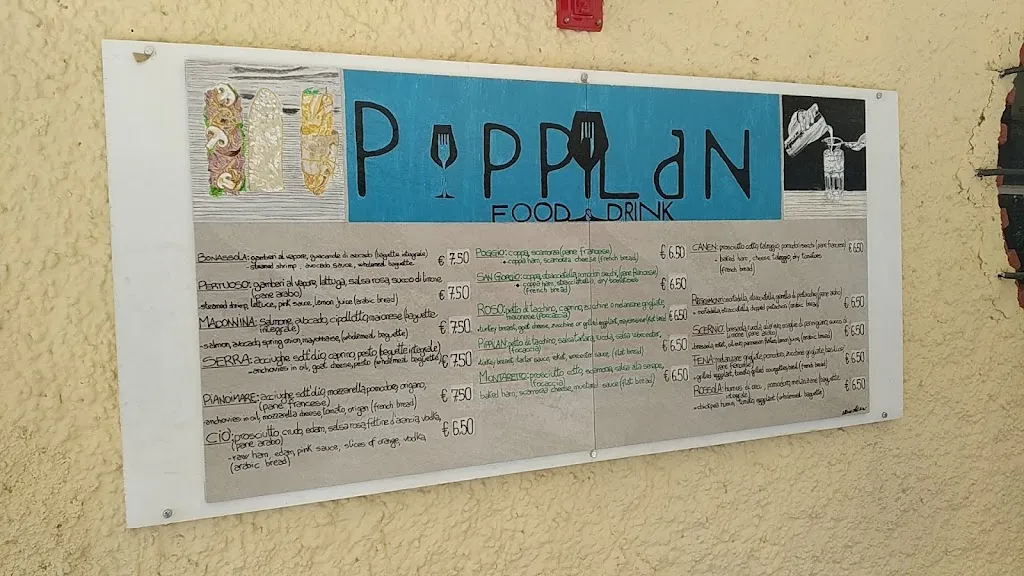 PIPPLAN
FOOD & DRINK
BONASSOLA: gamberi al vapore, guacamole di avocado (baguette integrale)
- steamed shrimp, avocado sauce, wholemeal baguette € 7,50
PERTUSO: gamberi al vapore, lattuga, salsa rosa, succo di limone
(pane arabo)
steamed shrimp, lettuce, pink sauce, lemon juice (arabic bread) € 7,50
MADONNINA: salmone, avocado, cipollotto, maionese (baguette
integrale)
- salmon, avocado, spring onion, mayonnaise, (wholemeal baguette) € 7,50
SERRA: acciughe sott'olio, caprino, pesto (baguette integrale)
- anchovies in oil, goat cheese, pesto (wholemeal baguette) € 7,50
PIANOIMARE: acciughe sott'olio, mozzarella, pomodoro, origano,
(pane francese)
anchovies in oil, mozzarella cheese, tomato, origan (french bread) € 7,50
CIÒ: prosciutto crudo, edam, salsa rosa, fettine d'arancia, vodka,
(pane arabo)
- raw ham, edam, pink sauce, slices of orange, vodka,
(arabic bread) € 6.50
POGGIO: coppa, scamorza (pane francese)
• coppa ham, scamorza cheese (french bread) € 6.50
SAN GIORGIO: coppa, stracciatella, pomodori secchi (pane francese)
• coppa ham, stracciatella, dry tomatoes
(french bread) € 6,50
ROSSO: petto di tacchino, caprino, zucchine o melanzane grigliate,
maionese (focaccia)
turkey breast, goat cheese, zucchine or grilled eggplant, mayonnaise (flat bread) € 6,50
PIPPLAN: petto di tacchino, salsa tartara, rucola, salsa worcester,
(focaccia)
turkey breast, tartar sauce, roket, worcester sauce, (flat bread) € 6,50
MONTARETTO: prosciutto cotto, scamorza, salsa alla senape,
(focaccia)
baked ham, scamorza cheese, mustard sauce (flat bread) € 6,50
CANEN: prosciutto cotto, taleggio, pomodori secchi (pane francese)
• baked ham, cheese taleggio, dry tomatoes
(french bread) € 6,50
mortadella, stracciatella, granella di pistacchio (pane arabo)
• mortadella, stracciatella, pistachios (arabic bread) € 6,50
bresaola, rucola, olio evo, scaglie di parmigiano, succo di
limone (pane arabo)
bresaola, roket, oil evo, parmesan flakes, lemon juice, (arabic bread) € 6.50
melanzane grigliate, pomodoro, zucchine grigliate, basilico
(pane francese)
• grilled eggplant, tomato, grilled courgettes (french bread) € 6,50
ROSSOLA: humus di ceci, pomodoro, melanzane (baguette
integrale)
• chickpeas humus, tomato, eggplant (wholemeal baguette) € 6.50